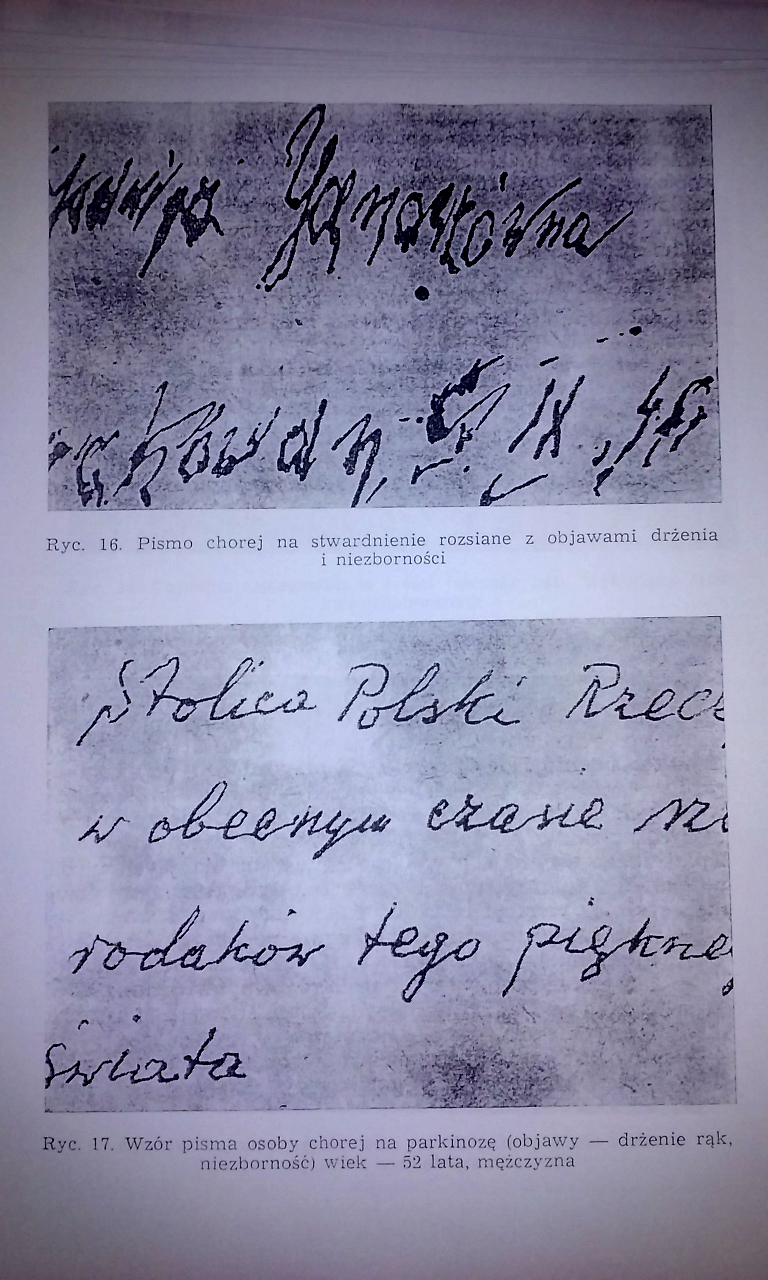 Janasówna
IX
Ryc. 16. Pismo chorej na stwardnienie rozsiane z objawami drżenia
i niezborności
Stolica Polski Rzecz
w obecnym czasie
rodaków tego piękne
świata
Ryc. 17. Wzór pisma osoby chorej na parkinozę (objawy — drżenie rąk,
niezborność) wiek — 52 lata, mężczyzna